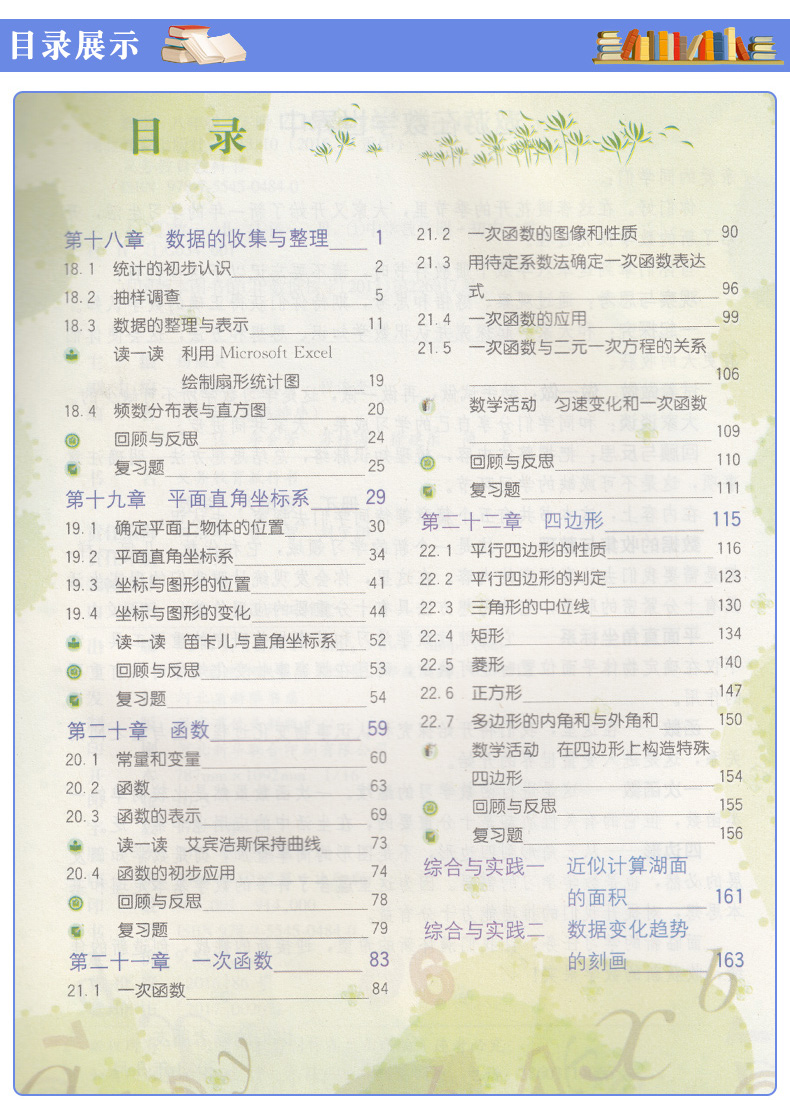 目录展示
目 录
第十八章 数据的收集与整理 1
18.1 统计的初步认识 2
18.2 抽样调查 5
18.3 数据的整理与表示 11
读一读 利用 Microsoft Excel
绘制扇形统计图 19
18.4 频数分布表与直方图 20
回顾与反思 24
复习题 25
第十九章 平面直角坐标系 29
19.1 确定平面上物体的位置 30
19.2 平面直角坐标系 34
19.3 坐标与图形的位置 41
19.4 坐标与图形的变化 44
读一读 笛卡儿与直角坐标系 52
回顾与反思 53
复习题 54
第二十章 函数 59
20.1 常量和变量 60
20.2 函数 63
20.3 函数的表示 69
读一读 艾宾浩斯保持曲线 73
20.4 函数的初步应用 74
回顾与反思 78
复习题 79
第二十一章 一次函数 83
21.1 一次函数 84
21.2 一次函数的图像和性质 90
21.3 用待定系数法确定一次函数表达
式 96
21.4 一次函数的应用 99
21.5 一次函数与二元一次方程的关系
106
数学活动 匀速变化和一次函数
109
回顾与反思 110
复习题 111
第二十二章 四边形 115
22.1 平行四边形的性质 116
22.2 平行四边形的判定 123
22.3 三角形的中位线 130
22.4 矩形 134
22.5 菱形 140
22.6 正方形 147
22.7 多边形的内角和与外角和 150
数学活动 在四边形上构造特殊
四边形 154
回顾与反思 155
复习题 156
综合与实践一 近似计算湖面
的面积 161
综合与实践二 数据变化趋势
的刻画 163